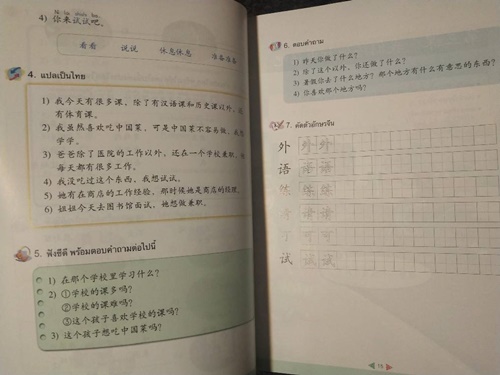 4) 你来试试吧。
看看 说说 休息休息 准备准备
4. แปลเป็นไทย
1) 我今天有很多课，除了有汉语课和历史课以外，还
有体育课。
2) 我虽然喜欢吃中国菜，可是中国菜不容易做，我想
学学。
3) 爸爸除了医院的工作以外，还在一个学校兼职，他
每天都有很多工作。
4) 我没吃过这个东西，我想试试。
5) 她有在商店的工作经验，那时候她是商店的经理。
6) 姐姐今天去图书馆面试，她想做兼职。
5. ฟังซีดี พร้อมตอบคำถามต่อไปนี้
1) 在那个学校里学习什么？
2) ①学校的课多吗？
②学校的课难吗？
③这个孩子喜欢学校的课吗？
3) 这个孩子想吃中国菜吗？
6. ตอบคำถาม
1) 昨天你做了什么？
2) 除了这个以外，你还做了什么？
3) 暑假你去了什么地方？那个地方有什么有意思的东西？
4) 你喜欢那个地方吗？
7. คัดตัวอักษรจีน
外 外 外
语 语 语
练 练 练
诸 诸
可 可
试 试 试
75